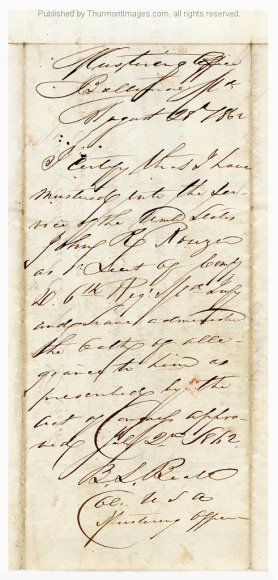 Copyright @ ThurmontImages.com, all rights reserved.
Mustering Office
Baltimore Md
August 28th 1862
I certify that I have
mustered into the Ser
vice of the United States
John R. Rouzer
as 1st Lieut of Comp
D. 6th Reg: Md Inf
and have administer
the oath of alle-
giance to him as
prescribed by the
act of Congress appro-
ved July 2nd 1862.
B. L. Beall
Col. U S A
Mustering Officer